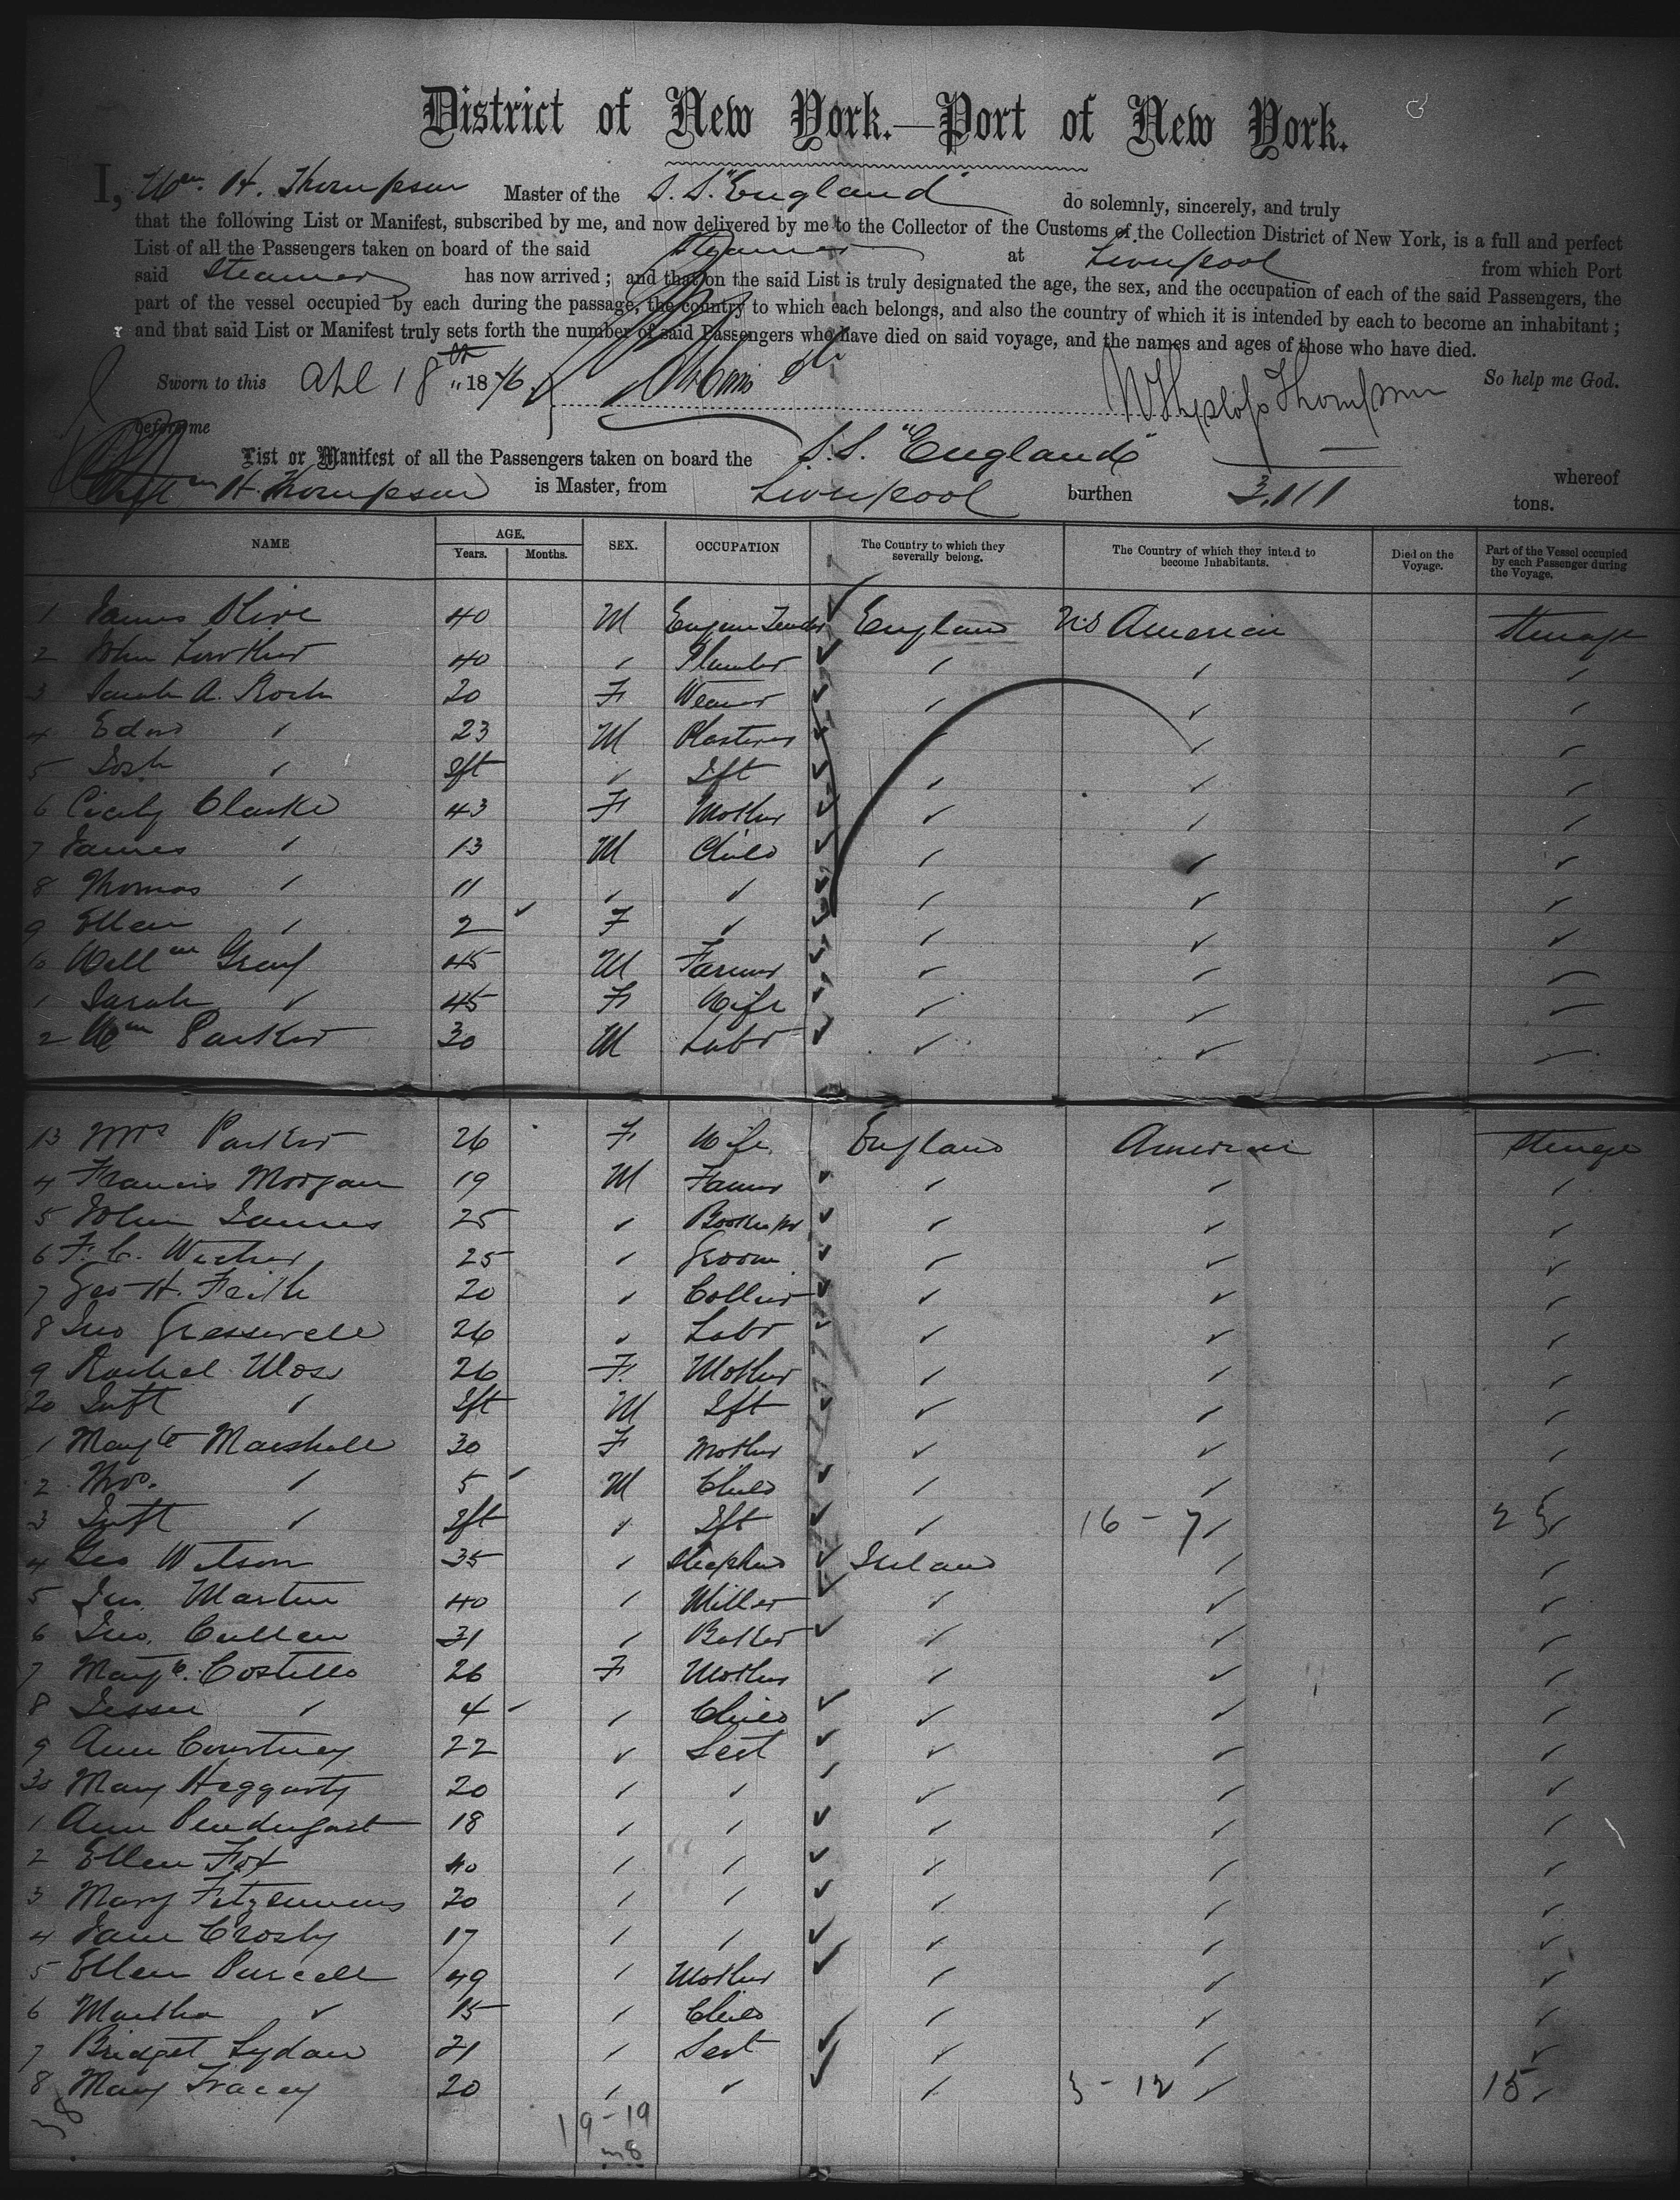 District of New York.—Port of New York.
I, Wm. H. Thompson Master of the S.S. "England" do solemnly, sincerely, and truly
that the following List or Manifest, subscribed by me, and now delivered by me to the Collector of the Customs of the Collection District of New York, is a full and perfect
List of all the Passengers taken on board of the said Steamer at Liverpool from which Port
said Steamer has now arrived; and that on the said List is truly designated the age, the sex, and the occupation of each of the said Passengers, the
part of the vessel occupied by each during the passage, the country to which each belongs, and also the country of which it is intended by each to become an inhabitant;
and that said List or Manifest truly sets forth the number of said Passengers who have died on said voyage, and the names and ages of those who have died.
Sworn to this Apl 18th 1876 Thompson So help me God.
before me
List or Manifest of all the Passengers taken on board the S.S. "England" whereof
H. Thompson is Master, from Liverpool burthen 3,111 tons.
NAME AGE. SEX. OCCUPATION The Country to which they severally belong. The Country of which they intend to become Inhabitants. Died on the Voyage. Part of the Vessel occupied by each Passenger during the Voyage.
Years. Months.
1 James Olive 40 M England U.S America Steerage
2 John Lowther 40 Plumber
3 Sarah A. Roch 20 F Weaver
4 Edwd 23 M Plasterer
5 Ift Ift
6 Cicily Clarke 43 F Mother
7 James 13 M Child
8 Thomas 11
9 Ellen 2 F
10 Willm Gray 45 M Farmer
1 Sarah 45 F Wife
2 Wm Parker 30 M Labr
13 Mrs Parker 26 F Wife England America Steerage
4 Francis Morgan 19 M Farmer
5 John James 25
6 F. C. 25 Groom
7 Geo H. Frith 20 Collier
8 Jno Gresswell 26 Labr
9 Rachel Moss 26 F Mother
20 Inft Ift M Ift
1 Margt Marshall 30 F Mother
2 Thos. 5 M Child
3 Inft Ift Ift 16 - 7 23
4 Geo Watson 35 Shepherd Ireland
5 Jno. Martin 40 Miller
6 Jno. Cullen 31
7 Margt. Costello 26 F Mother
8 Jessie 4 Child
9 Ann Courtney 22 Sert
30 Mary Haggarty 20
1 Ann Pendergast 18
2 Ellen Fox 40
3 Mary Fitzsimmons 20
4 Jane Crosby 17
5 Ellen Purcell 49 Mother
6 Martha 15 Child
7 Bridget Lydon 21 Sert
8 Mary Tracey 20 3 - 12 15
38 19-19
38